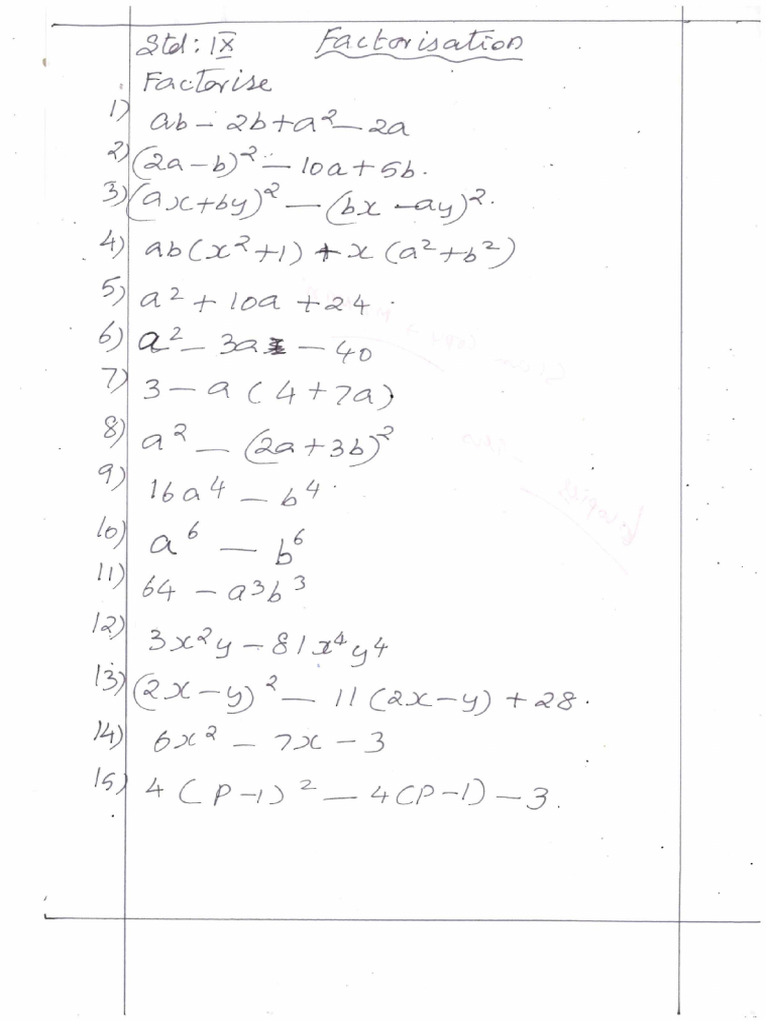 Std: IX Factorisation
Factorise
1) ab - 2b + a² - 2a
2) (2a - b)² - 10a + 5b.
3) (ax + by)² - (bx - ay)².
4) ab (x² + 1) + x (a² + b²)
5) a² + 10a + 24.
6) a² - 3a - 40
7) 3 - a (4 + 7a)
8) a² - (2a + 3b)²
9) 16a⁴ - b⁴.
10) a⁶ - b⁶
11) 64 - a³b³
12) 3x²y - 81x⁴y⁴
13) (2x - y)² - 11 (2x - y) + 28.
14) 6x² - 7x - 3
15) 4 (P - 1)² - 4 (P - 1) - 3.